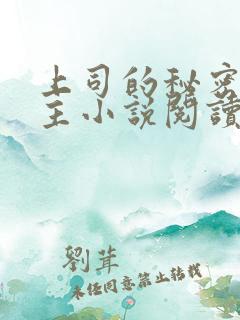 上司的秘密
主小说阅读
劉茸
未经同意禁止转载